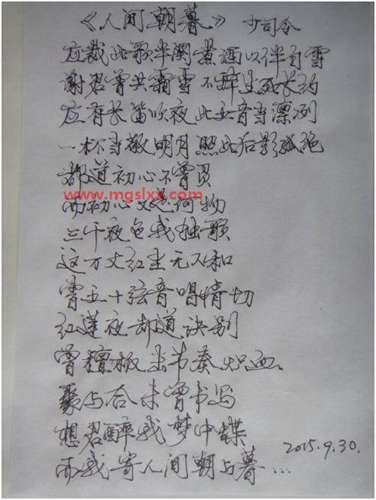 《人间朝暮》 少司命
应裁此歌半阕煮酒以伴白雪
谢君曾共霜雪 不辞生死长约
应有长笛吹夜 此去音尘凛冽
一杯当敬明月 照此后影孤绝
都道初心不曾
www.mgslxx.com
而初心又是何物
三千夜色我独歌
这万丈红尘无人和
曾五十弦音唱情切
红莲夜却道诀别
曾檀板来节奏
聚与合未曾书写
想君醉我梦中蝶
而我寄人间朝与暮...
2015.9.30.